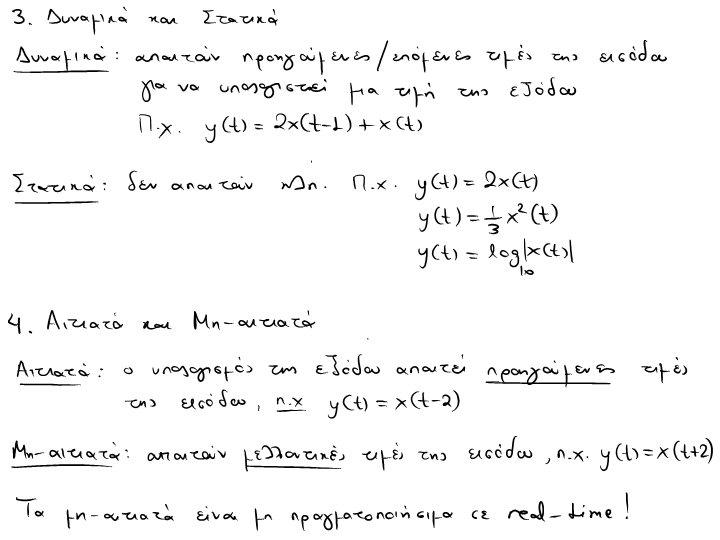 3. Δυναμικά και Στατικά
Δυναμικά: απαιτούν προηγούμενες/επόμενες τιμές της εισόδου
για να υπολογιστεί μια τιμή της εξόδου
Π.χ. y(t) = 2x(t-1) + x(t)
Στατικά: δεν απαιτούν πληρ. Π.χ. y(t) = 2x(t)
y(t) = 1/3 x²(t)
y(t) = log₁₀|x(t)|
4. Αιτιατά και Μη-αιτιατά
Αιτιατά: ο υπολογισμός της εξόδου απαιτεί προηγούμενες τιμές
της εισόδου, π.χ y(t) = x(t-2)
Μη-αιτιατά: απαιτούν μελλοντικές τιμές της εισόδου, π.χ. y(t) = x(t+2)
Τα μη-αιτιατά είναι μη πραγματοποιήσιμα σε real-time!